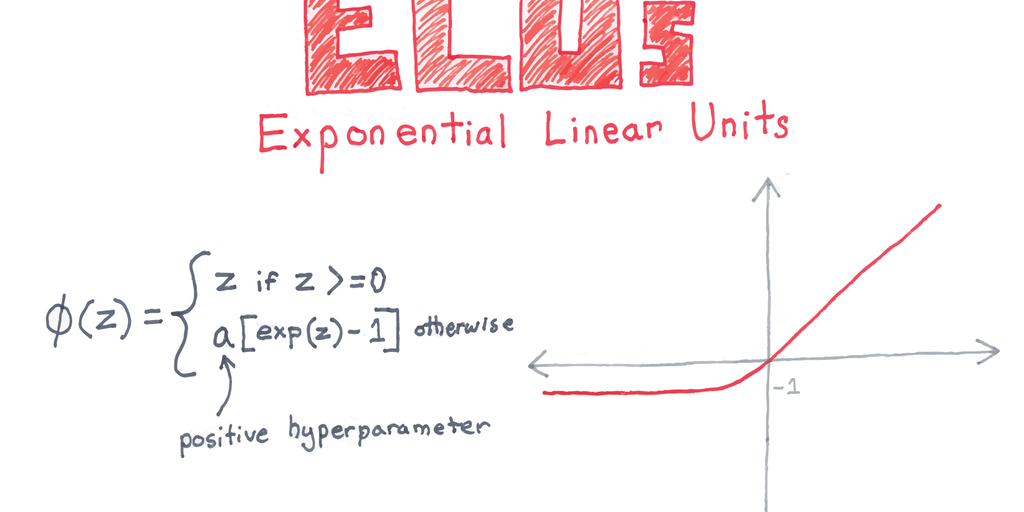 ELUs
Exponential Linear Units
ϕ(z) = { z if z >=0
a[exp(z)-1] otherwise
positive hyperparameter
-1